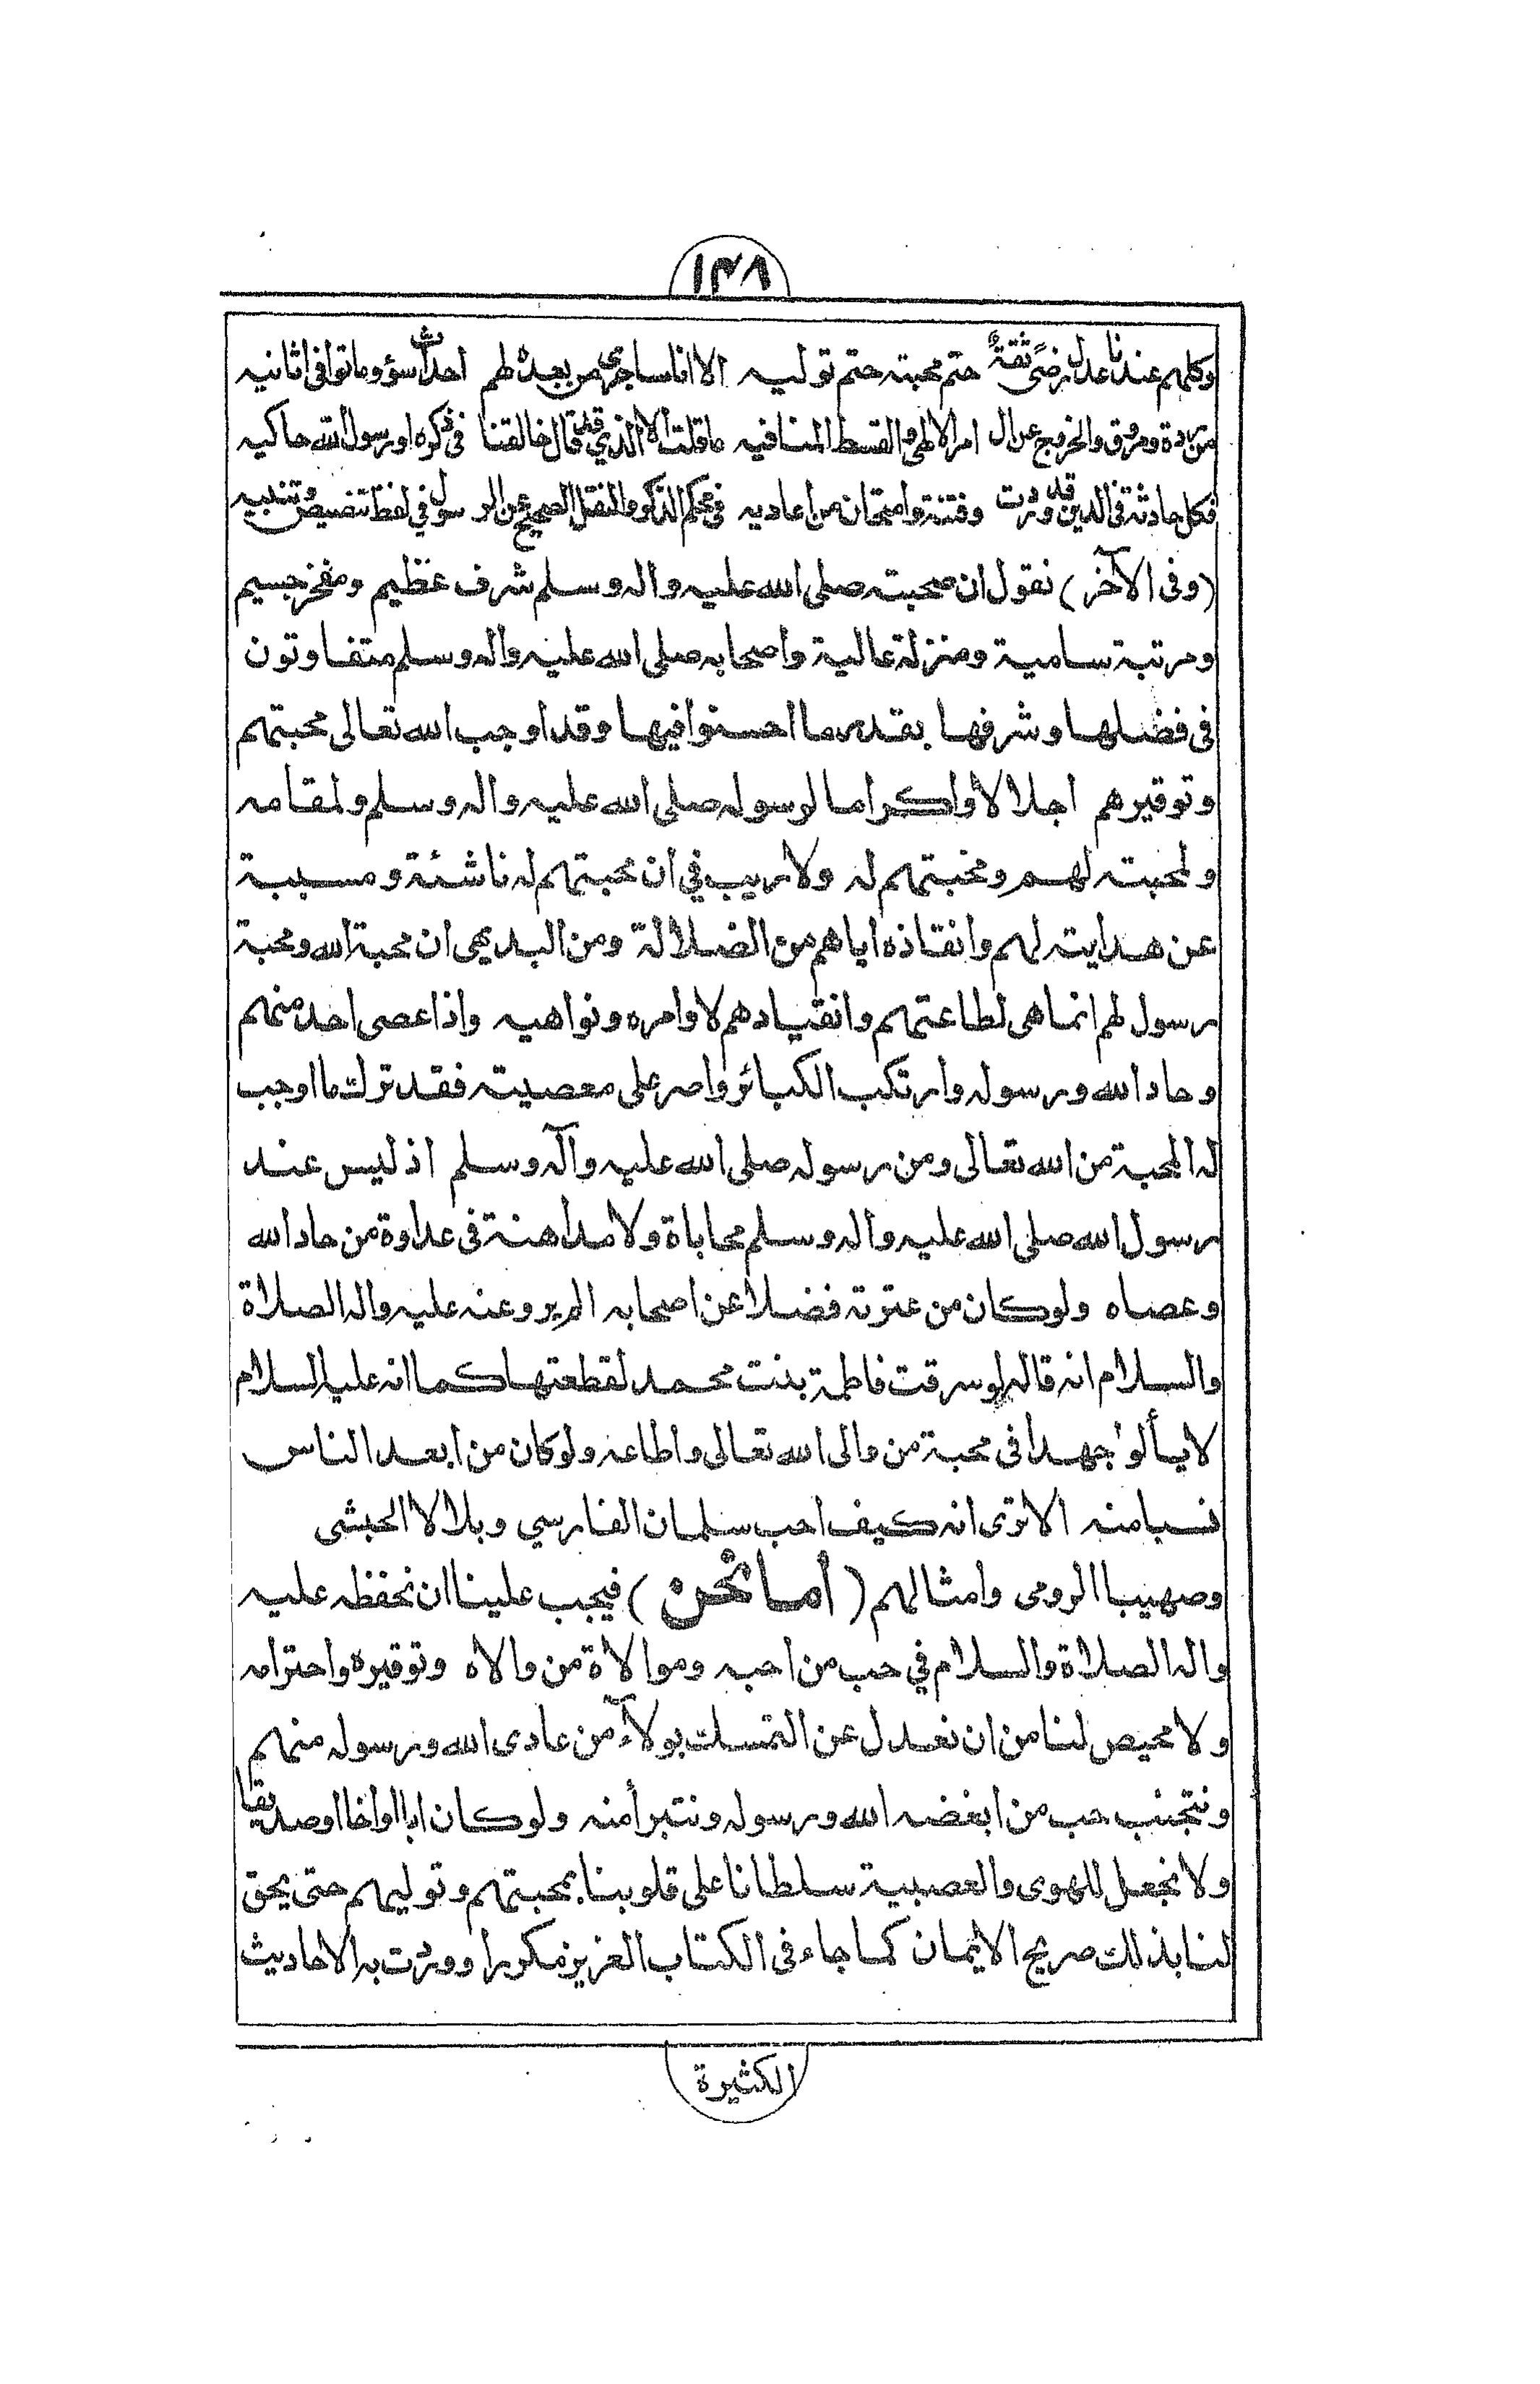 ١٣٨
وكلهم عندنا عدل رضًى ثقةٌ حتم محبته حتم توليه الا اناسا جرى من بعده لهم احداث سؤ وماتوا فى اثانيه
من ردة ومروق والخروج عن ال امر الالهى والقسط المنافيه ما قلت الا الذي قد قال خالقنا فى ذكره او رسول الله حاكيه
فكل حادثة فى الدين قد وردت وفتنة وامتحان من اعاديه فى محكم الذكر والنقل الصحيح عن الر سول في لفظ تنصيص وتنبيه
(وفى الآخر) نقول ان صحبته صلى الله عليه واله وسلم شرف عظيم ومفخر جسيم
ومرتبة سامية ومنزلة عالية واصحابه صلى الله عليه واله وسلم متفاوتون
فى فضلها وشرفها بقدر ما احسنوا فيها وقد اوجب الله تعالى محبتهم
وتوقيرهم اجلالا واكراما لرسوله صلى الله عليه واله وسلم ولمقامه
ولمحبته لهم ومحبتهم له ولا ريب في ان محبتهم له ناشئة ومسببة
عن هدايته لهم وانقاذه اياهم من الضلالة ومن البديهى ان محبة الله ومحبة
رسول لهم انما هى لطاعتهم وانقيادهم لاوامره ونواهيه واذا عصى احد منهم
وحاد الله ورسوله وارتكب الكبائر واصر على معصيته فقد ترك ما اوجب
له المحبة من الله تعالى ومن رسوله صلى الله عليه وآله وسلم اذ ليس عند
رسول الله صلى الله عليه واله وسلم محاباة ولا مداهنة فى عداوة من حاد الله
وعصاه ولوكان من عترته فضلا عن اصحابه الم يرو عنه عليه واله الصلاة
والسلام انه قال لو سرقت فاطمة بنت محمد لقطعتها كما انه عليه السلام
لا يألوا جهدا فى محبة من والى الله تعالى واطاعه ولوكان من ابعد الناس
نسبا منه الا ترى انه كيف احب سلمان الفارسي وبلالا الحبشى
وصهيبا الرومى وامثالهم (أما نحن) فيجب علينا ان نحفظه عليه
واله الصلاة والسلام في حب من احبه وموالاة من والاه وتوقيره واحترامه
ولا محيص لنا من ان نعدل عن التمسك بولآء من عادى الله ورسوله منهم
ونتجنب حب من ابغضه الله ورسوله ونتبرأ منه ولو كان ابا او اخا او صديقا
ولا نجعل للهوى والعصبية سلطانا على قلوبنا بمحبتهم وتوليهم حتى يحق
لنا بذلك صريح الايمان كما جاء فى الكتاب العزيز مكررا ووردت به الاحاديث
الكثيرة